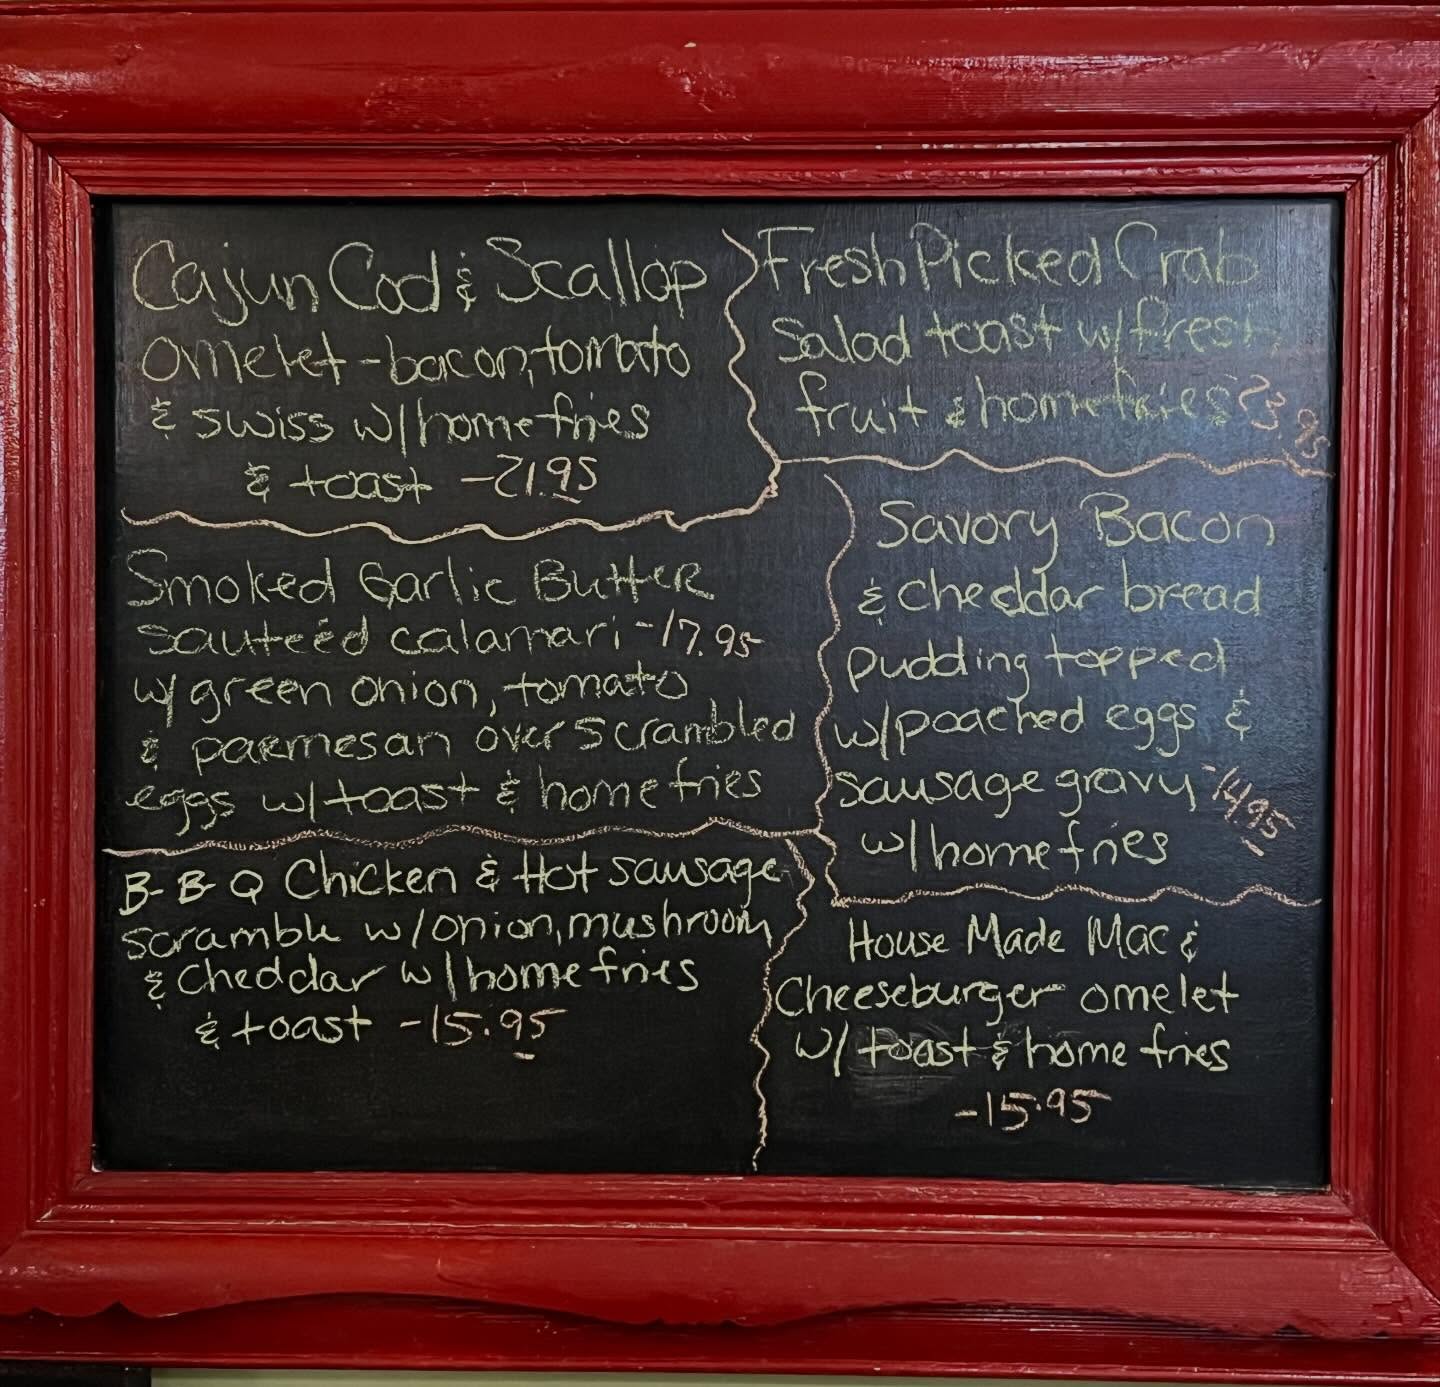 Cajun Cod & Scallop
omelet - bacon, tomato
& swiss w/ homefries
& toast - 21.95
Smoked Garlic Butter
sauteéd calamari - 17.95
w/ green onion, tomato
& parmesan over scrambled
eggs w/ toast & homefries
B-B-Q Chicken & Hot sausage
scramble w/ onion, mushroom
& cheddar w/ homefries
& toast - 15.95
Fresh Picked Crab
salad toast w/ fresh
fruit & homefries 23.95
Savory Bacon
& cheddar bread
pudding topped
w/ poached eggs &
sausage gravy - 14.95
w/ homefries
House Made Mac &
Cheeseburger omelet
w/ toast & home fries
- 15.95